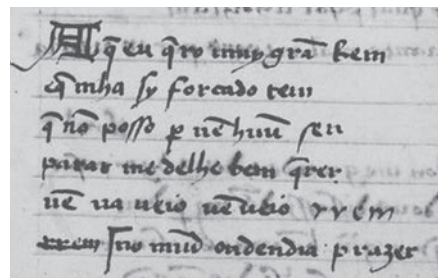 A q̄ eu q̄ro muy grã bem
q̄ mha sy forcado tem
q̄ nõ posso p̱ nẽ hũu sen
partar me delhe bem q̄rer
nẽ va veio nẽ veio rrem
rrem sno mũd ondendia prazer